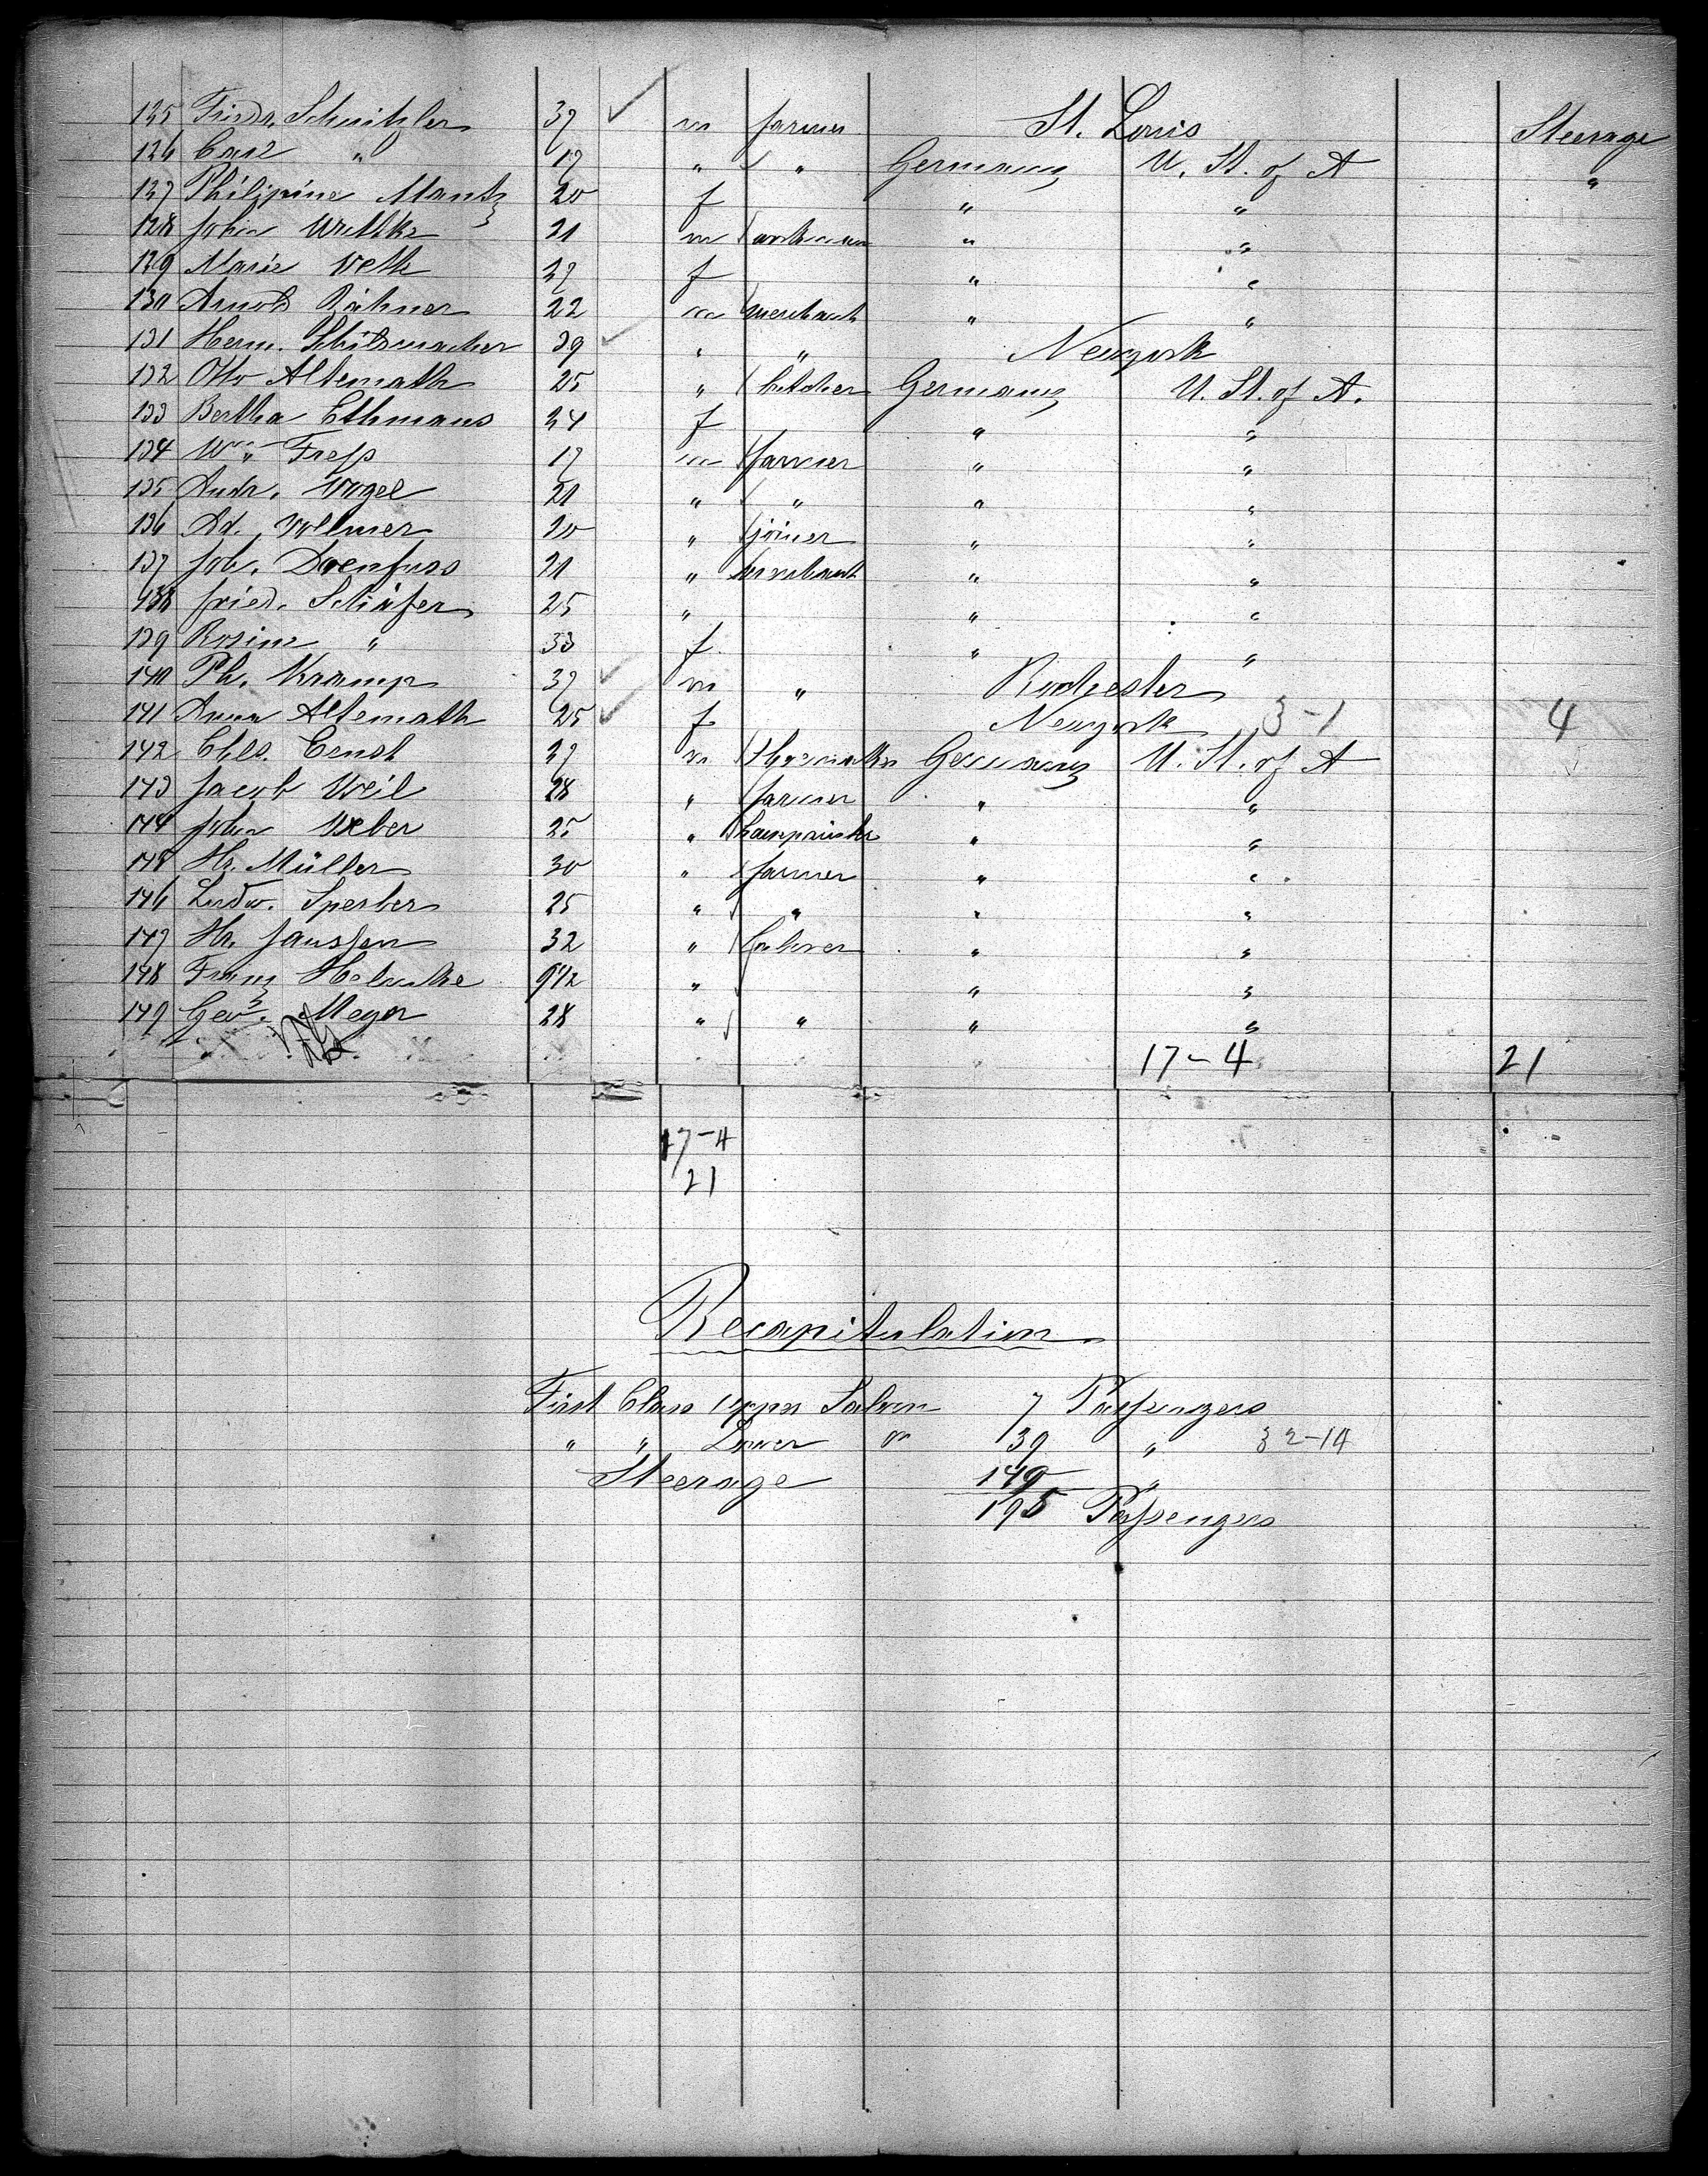 125 Friedr. Schnitzler 37 ✓ m farmer St. Louis Steerage
126 Carl " 17 " " Germany U. St. of A "
127 Philippine Mantz 20 f " "
128 John Wittke 21 m workman " "
129 Marie Veth 37 f " "
130 Arnold Rähner 22 m merchant " "
131 Herm. 39 ✓ " " Newyork
132 Otto Altemath 25 " butcher Germany U. St. of A.
133 Bertha Ethmans 24 f " "
134 Wm Fress 17 m farmer " "
135 Andr. Vogel 21 " " " "
136 Ad. Vollmer 20 " joiner " "
137 Joh. 21 " merchant " "
138 Fried. Schäfer 25 " " "
139 Rosine " 33 f " "
140 Ph. Kramp 37 ✓ m " Rochester
141 Anna Altemath 25 ✓ f Newyork 3-1 4
142 Chls. Ernst 37 m Germany U. St. of A
143 Jacob Weil 28 " farmer " "
144 John Weber 25 " " "
145 Hr. Müller 30 " farmer " "
146 Ludw. Sperber 25 " " " "
147 Hr. Janssen 32 " " "
148 Franz 9 1/2 " " "
149 Geo. Meyer 28 " " " "
17-4 21
17-4
21
Recapitulation
First Class upper Saloon 7 Passengers
" " Lower " 39 " 32-14
Steerage 149 "
195 Passengers